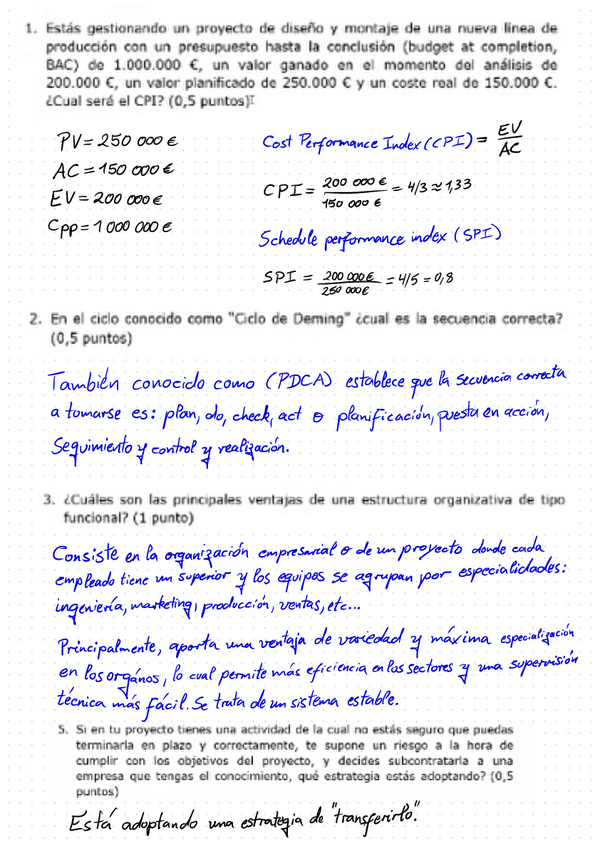 1. Estás gestionando un proyecto de diseño y montaje de una nueva línea de
producción con un presupuesto hasta la conclusión (budget at completion,
BAC) de 1.000.000 €, un valor ganado en el momento del análisis de
200.000 €, un valor planificado de 250.000 € y un coste real de 150.000 €.
¿Cual será el CPI? (0,5 puntos)
PV = 250 000 €
AC = 150 000 €
EV = 200 000 €
Cpp = 1 000 000 €
Cost Performance Index (CPI) = EV / AC
CPI = 200 000 € / 150 000 € = 4/3 ≈ 1,33
Schedule performance index (SPI)
SPI = 200 000 € / 250 000 € = 4/5 = 0,8
2. En el ciclo conocido como "Ciclo de Deming" ¿cual es la secuencia correcta?
(0,5 puntos)
También conocido como (PDCA) establece que la secuencia correcta
a tomarse es: plan, do, check, act o planificación, puesta en acción,
Seguimiento y control y realización.
3. ¿Cuáles son las principales ventajas de una estructura organizativa de tipo
funcional? (1 punto)
Consiste en la organización empresarial o de un proyecto donde cada
empleado tiene un superior y los equipos se agrupan por especialidades:
ingeniería, marketing, producción, ventas, etc...
Principalmente, aporta una ventaja de variedad y máxima especialización
en los orgános, lo cual permite más eficiencia en los sectores y una supervisión
técnica más fácil. Se trata de un sistema estable.
5. Si en tu proyecto tienes una actividad de la cual no estás seguro que puedas
terminarla en plazo y correctamente, te supone un riesgo a la hora de
cumplir con los objetivos del proyecto, y decides subcontratarla a una
empresa que tengas el conocimiento, qué estrategia estás adoptando? (0,5
puntos)
Está adoptando una estrategia de "transferirlo".